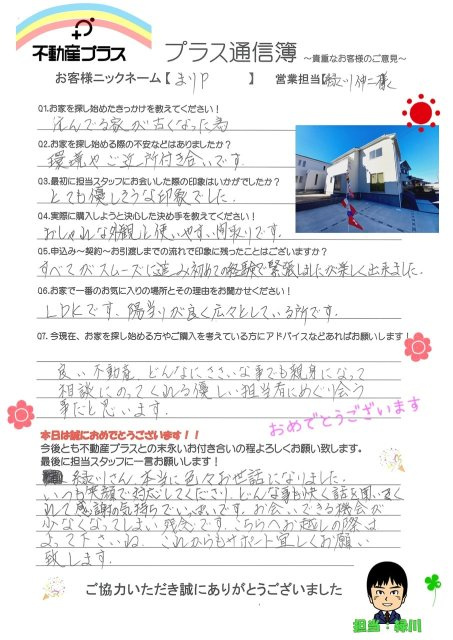 不動産プラス プラス通信簿 ～貴重なお客様のご意見～
お客様ニックネーム【 まりP 】 営業担当【緑川 伸二様
Q1.お家を探し始めたきっかけを教えてください！
住んでる家が古くなった為
Q2.お家を探し始める際の不安などはありましたか？
環境やご近所付き合いです。
Q3.最初に担当スタッフにお会いした際の印象はいかがでしたか？
とても優しそうな印象でした。
Q4.実際に購入しようと決心した決め手を教えてください！
おしゃれな外観と使いやすい間取りです。
Q5.申込み～契約～お引渡しまでの流れで印象に残ったことはございますか？
すべてがスムーズに進み初めての経験で緊張しましたが楽しく出来ました。
Q6.お家で一番のお気に入りの場所とその理由をお聞かせください！
LDKです。陽当りが良く広々としている所です。
Q7.今現在、お家を探し始める方やご購入を考えている方にアドバイスなどあればお願いします！
良い不動産、どんなにささいな事でも親身になって
相談にのってくれる優しい担当者にめぐり会う
事だと思います。
おめでとうございます
本日は誠におめでとうございます！！
今後とも不動産プラスとの末永いお付き合いの程よろしくお願い致します。
最後に担当スタッフに一言お願いします！
緑川さん、本当に色々お世話になりました。
いつも笑顔で対応してくださり、どんな事も快く話を聞いてく
れて感謝の気持ちでいっぱいです。お会いできる機会が
少なくなってしまい残念です。こちらへお越しの際は
よって下さいね。これからもサポート宜しくお願い
致します。
ご協力いただき誠にありがとうございました
担当：緑川